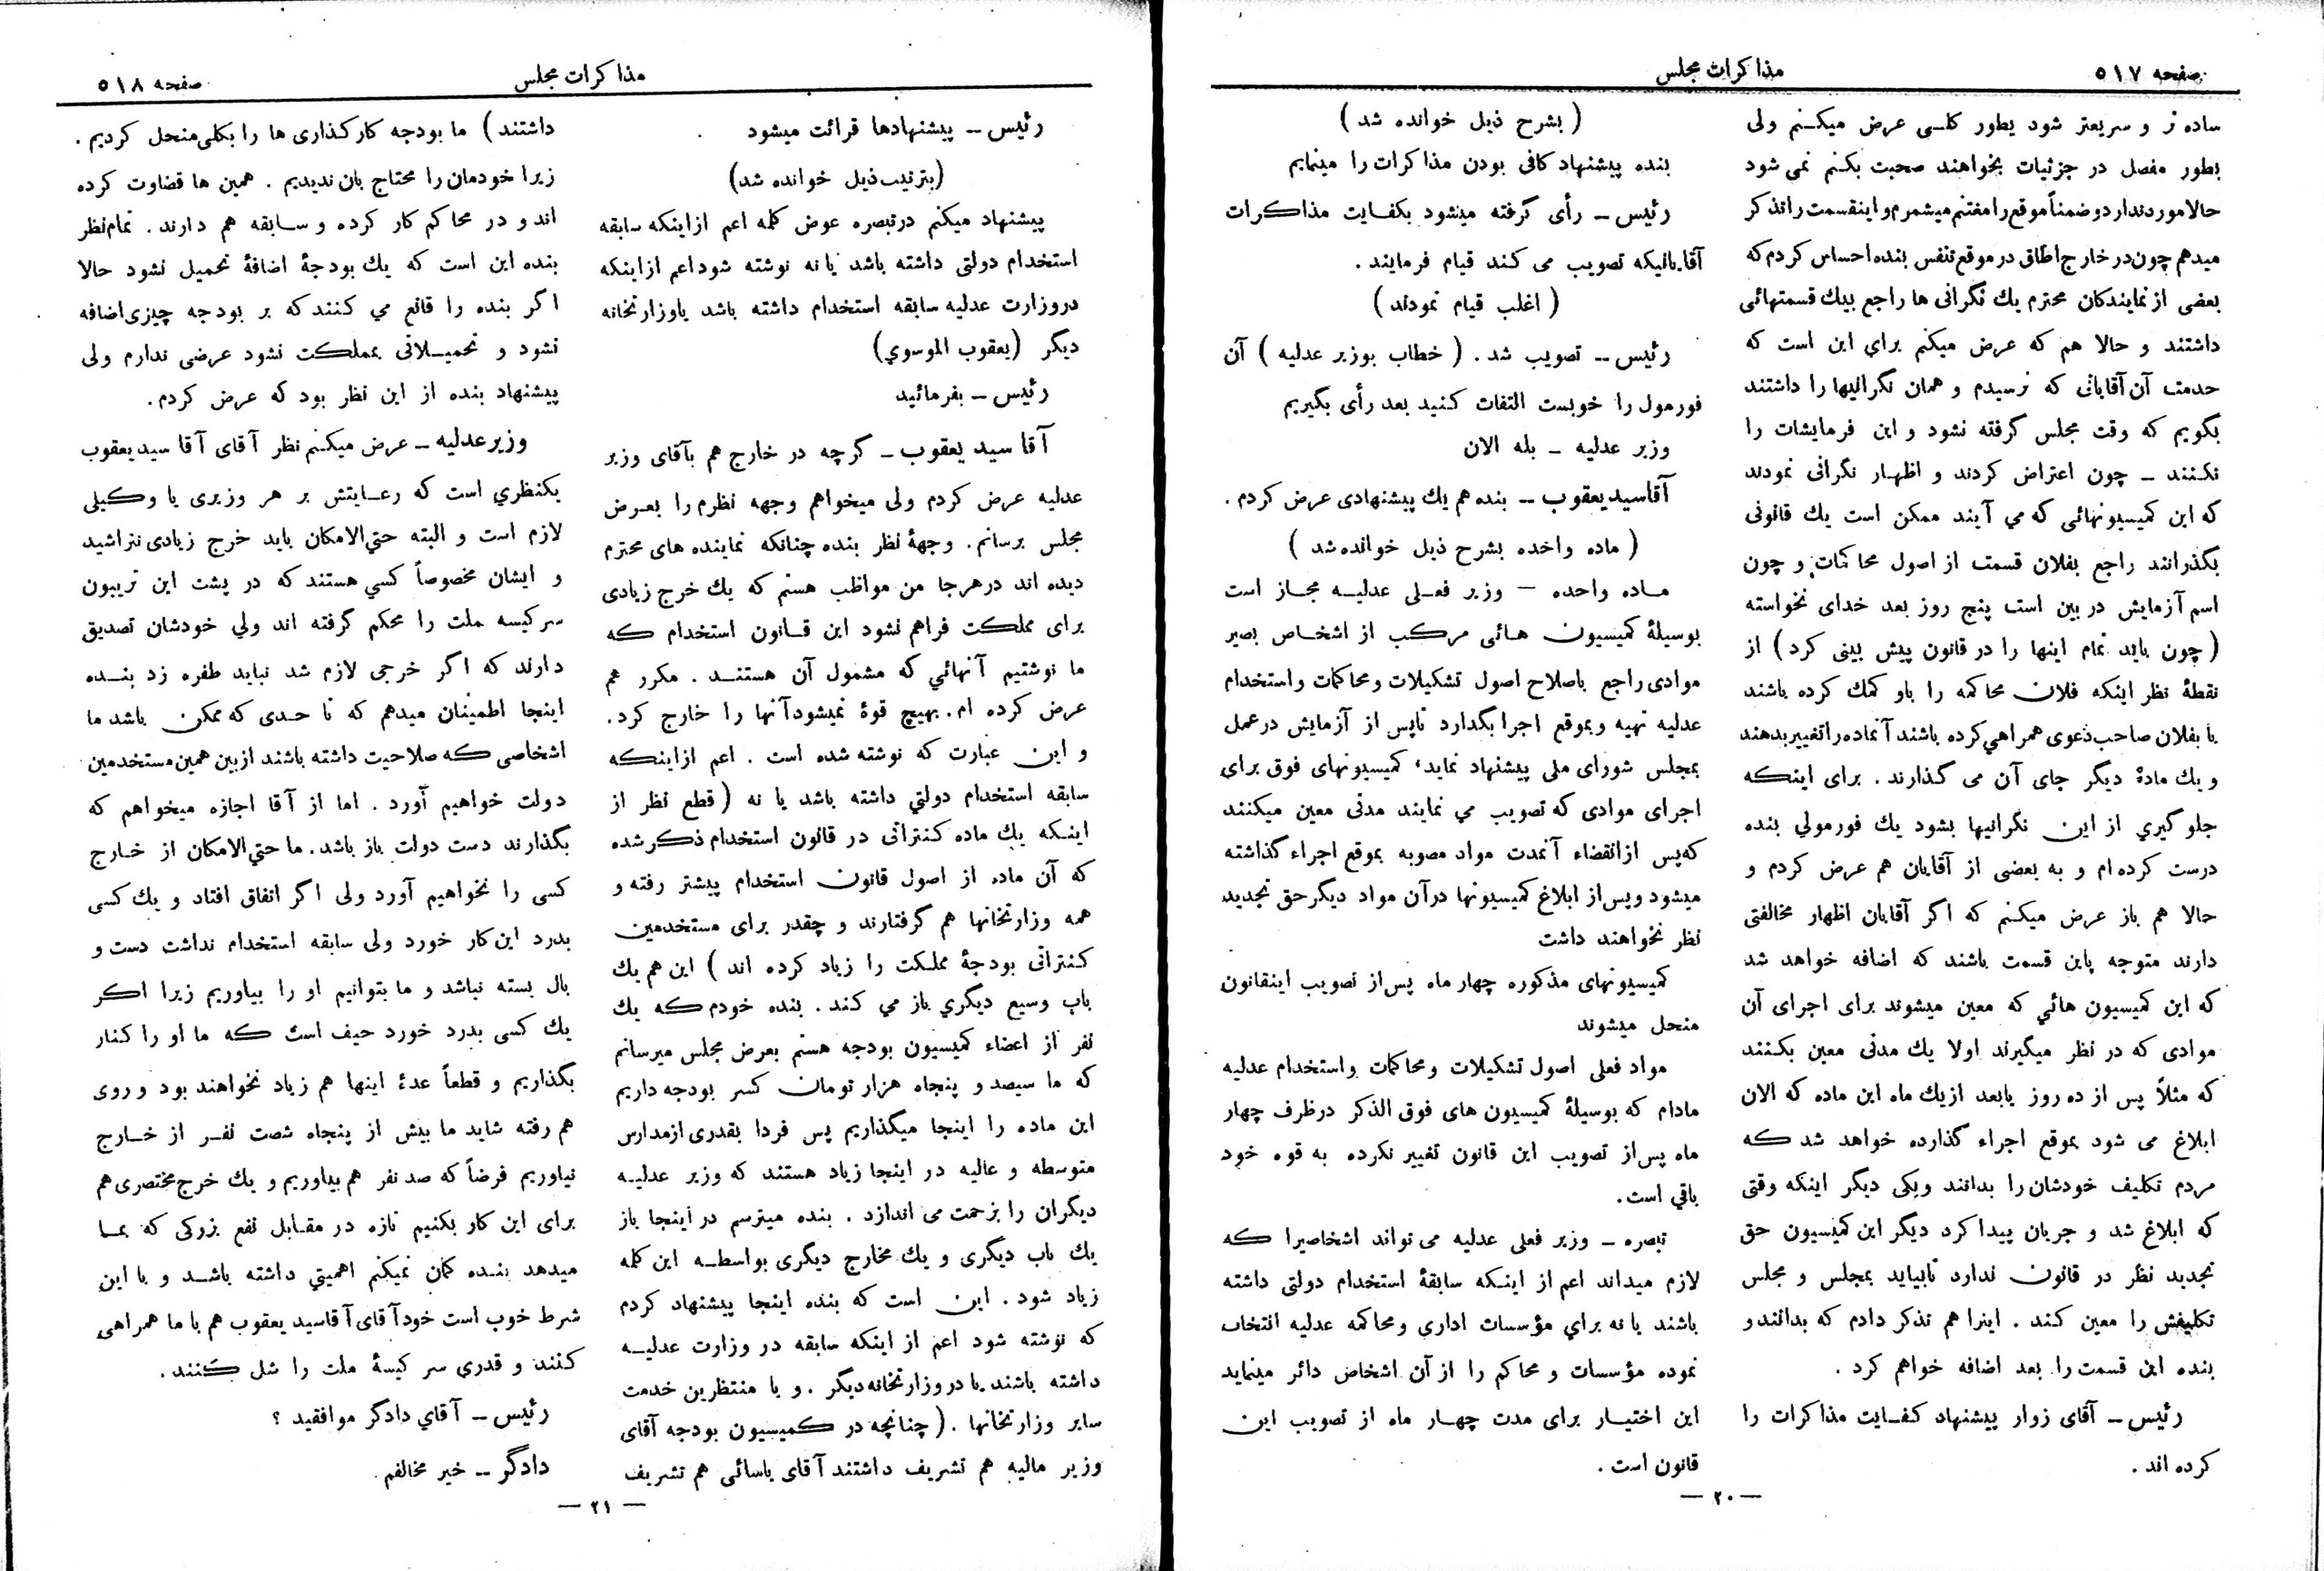 صفحه ٥١٧
مذاکرات مجلس
ساده تر و سریعتر شود بطور کلی عرض میکنم ولی
بطور مفصل در جزئیات بخواهند صحبت بکنم نمی شود
حالا مورد ندارد و ضمناً موقع را مغتنم میشمرم و اینقسمت را تذکر
میدهم چون در خارج اطاق در موقع تنفس بنده احساس کردم که
بعضی از نمایندگان محترم یك نگرانی ها راجع بیك قسمتهائی
داشتند و حالا هم که عرض میکنم برای این است که
خدمت آن آقایانی که نرسیدم و همان نگرانیها را داشتند
بگویم که وقت مجلس گرفته نشود و این فرمایشات را
نکنند ـ چون اعتراض کردند و اظهار نگرانی نمودند
که این کمیسیونهائی که می آیند ممکن است یك قانونی
بگذرانند راجع بفلان قسمت از اصول محاکمات و چون
اسم آزمایش در بین است پنج روز بعد خدای نخواسته
( چون باید تمام اینها را در قانون پیش بینی کرد ) از
نقطهٔ نظر اینکه فلان محاکمه را باو کمك کرده باشند
یا بفلان صاحب دعوی همراهی کرده باشند آنماده را تغییر بدهند
و یك مادهٔ دیگر جای آن می گذارند . برای اینکه
جلو گیری از این نگرانیها بشود یك فورمولی بنده
درست کرده ام و به بعضی از آقایان هم عرض کردم و
حالا هم باز عرض میکنم که اگر آقایان اظهار مخالفتی
دارند متوجه باین قسمت باشند که اضافه خواهد شد
که این کمیسیون هائی که معین میشوند برای اجرای آن
موادی که در نظر میگیرند اولا یك مدتی معین بکنند
که مثلاً پس از ده روز یا بعد از یك ماه این ماده که الان
ابلاغ می شود بموقع اجراء گذارده خواهد شد که
مردم تکلیف خودشان را بدانند و یکی دیگر اینکه وقتی
که ابلاغ شد و جریان پیدا کرد دیگر این کمیسیون حق
تجدید نظر در قانون ندارد تا بیاید بمجلس و مجلس
تکلیفش را معین کند . اینرا هم تذکر دادم که بدانند و
بنده این قسمت را بعد اضافه خواهم کرد .
رئیس ـ آقای زوار پیشنهاد کفایت مذاکرات را
کرده اند .
( بشرح ذیل خوانده شد )
بنده پیشنهاد کافی بودن مذاکرات را مینمایم
رئیس ـ رأی گرفته میشود بکفایت مذاکرات
آقایانیکه تصویب می کند قیام فرمایند .
( اغلب قیام نمودند )
رئیس ـ تصویب شد . ( خطاب بوزیر عدلیه ) آن
فورمول را خوبست التفات کنید بعد رأی بگیریم
وزیر عدلیه ـ بله الان
آقا سید یعقوب ـ بنده هم یك پیشنهادی عرض کردم .
( ماده واحده بشرح ذیل خوانده شد )
ماده واحده — وزیر فعلی عدلیه مجاز است
بوسیلهٔ کمیسیون هائی مرکب از اشخاص بصیر
موادی راجع باصلاح اصول تشکیلات و محاکمات و استخدام
عدلیه تهیه و بموقع اجرا بگذارد تا پس از آزمایش در عمل
بمجلس شورای ملی پیشنهاد نماید ، کمیسیونهای فوق برای
اجرای موادی که تصویب می نمایند مدتی معین میکنند
که پس از انقضاء آنمدت مواد مصوبه بموقع اجراء گذاشته
میشود و پس از ابلاغ کمیسیونها در آن مواد دیگر حق تجدید
نظر نخواهند داشت
کمیسیونهای مذکوره چهار ماه پس از تصویب اینقانون
منحل میشوند
مواد فعلی اصول تشکیلات و محاکمات و استخدام عدلیه
مادام که بوسیلهٔ کمیسیون های فوق الذکر در ظرف چهار
ماه پس از تصویب این قانون تغییر نکرده به قوه خود
باقی است .
تبصره ـ وزیر فعلی عدلیه می تواند اشخاصیرا که
لازم میداند اعم از اینکه سابقهٔ استخدام دولتی داشته
باشند یا نه برای مؤسسات اداری و محاکمه عدلیه انتخاب
نموده مؤسسات و محاکم را از آن اشخاص دائر مینماید
این اختیار برای مدت چهار ماه از تصویب این
قانون است .
— ٢٠ —
مذاکرات مجلس
صفحه ٥١٨
رئیس ـ پیشنهادها قرائت میشود .
(بترتیب ذیل خوانده شد)
پیشنهاد میکنم در تبصره عوض کلمه اعم از اینکه سابقه
استخدام دولتی داشته باشد یا نه نوشته شود اعم از اینکه
در وزارت عدلیه سابقه استخدام داشته باشد یا وزارتخانه
دیگر (یعقوب الموسوی)
رئیس ـ بفرمائید
آقا سید یعقوب ـ گرچه در خارج هم بآقای وزیر
عدلیه عرض کردم ولی میخواهم وجهه نظرم را بعرض
مجلس برسانم . وجههٔ نظر بنده چنانکه نماینده های محترم
دیده اند در هر جا من مواظب هستم که یك خرج زیادی
برای مملکت فراهم نشود این قانون استخدام که
ما نوشتیم آنهائی که مشمول آن هستند . مکرر هم
عرض کرده ام . بهیچ قوهٔ نمیشود آنها را خارج کرد.
و این عبارت که نوشته شده است . اعم از اینکه
سابقه استخدام دولتی داشته باشد یا نه ( قطع نظر از
اینکه یك ماده کنتراتی در قانون استخدام ذکر شده
که آن ماده از اصول قانون استخدام پیشتر رفته و
همه وزارتخانها هم گرفتارند و چقدر برای مستخدمین
کنتراتی بودجهٔ مملکت را زیاد کرده اند ) این هم یك
باب وسیع دیگری باز می کند . بنده خودم که یك
نفر از اعضاء کمیسیون بودجه هستم بعرض مجلس میرسانم
که ما سیصد و پنجاه هزار تومان کسر بودجه داریم
این ماده را اینجا میگذاریم پس فردا بقدری از مدارس
متوسطه و عالیه در اینجا زیاد هستند که وزیر عدلیه
دیگران را بزحمت می اندازد . بنده میترسم در اینجا باز
یك باب دیگری و یك مخارج دیگری بواسطه این کلمه
زیاد شود . این است که بنده اینجا پیشنهاد کردم
که نوشته شود اعم از اینکه سابقه در وزارت عدلیه
داشته باشند یا در وزارتخانه دیگر . و یا منتظرین خدمت
سایر وزارتخانها . ( چنانچه در کمیسیون بودجه آقای
وزیر مالیه هم تشریف داشتند آقای یاسائی هم تشریف
داشتند ) ما بودجه کارگذاری ها را بکلی منحل کردیم .
زیرا خودمان را محتاج بان ندیدیم . همین ها قضاوت کرده
اند و در محاکم کار کرده و سابقه هم دارند . تمام نظر
بنده این است که یك بودجهٔ اضافهٔ تحمیل نشود حالا
اگر بنده را قانع می کنند که بر بودجه چیزی اضافه
نشود و تحمیلاتی بمملکت نشود عرضی ندارم ولی
پیشنهاد بنده از این نظر بود که عرض کردم .
وزیر عدلیه ـ عرض میکنم نظر آقای آقا سید یعقوب
یکنظری است که رعایتش بر هر وزیری یا وکیلی
لازم است و البته حتی الامکان باید خرج زیادی نتراشید
و ایشان مخصوصاً کسی هستند که در پشت این تریبون
سر کیسه ملت را محکم گرفته اند ولی خودشان تصدیق
دارند که اگر خرجی لازم شد نباید طفره زد بنده
اینجا اطمینان میدهم که تا حدی که ممکن باشد ما
اشخاصی که صلاحیت داشته باشند از بین همین مستخدمین
دولت خواهیم آورد . اما از آقا اجازه میخواهم که
بگذارند دست دولت باز باشد . ما حتی الامکان از خارج
کسی را نخواهیم آورد ولی اگر اتفاق افتاد و یك کسی
بدرد این کار خورد ولی سابقه استخدام نداشت دست و
بال بسته نباشد و ما بتوانیم او را بیاوریم زیرا اگر
یك کسی بدرد خورد حیف است که ما او را کنار
بگذاریم و قطعاً عدهٔ اینها هم زیاد نخواهند بود و روی
هم رفته شاید ما بیش از پنجاه شصت نفر از خارج
نیاوریم فرضاً که صد نفر هم بیاوریم و یك خرج مختصری هم
برای این کار بکنیم تازه در مقابل نفع بزرکی که بما
میدهد بنده گمان نمیکنم اهمیتی داشته باشد و با این
شرط خوب است خود آقای آقا سید یعقوب هم با ما همراهی
کنند و قدری سر کیسهٔ ملت را شل کنند .
رئیس ـ آقای دادگر موافقید ؟
دادگر ـ خیر مخالفم .
— ٢١ —